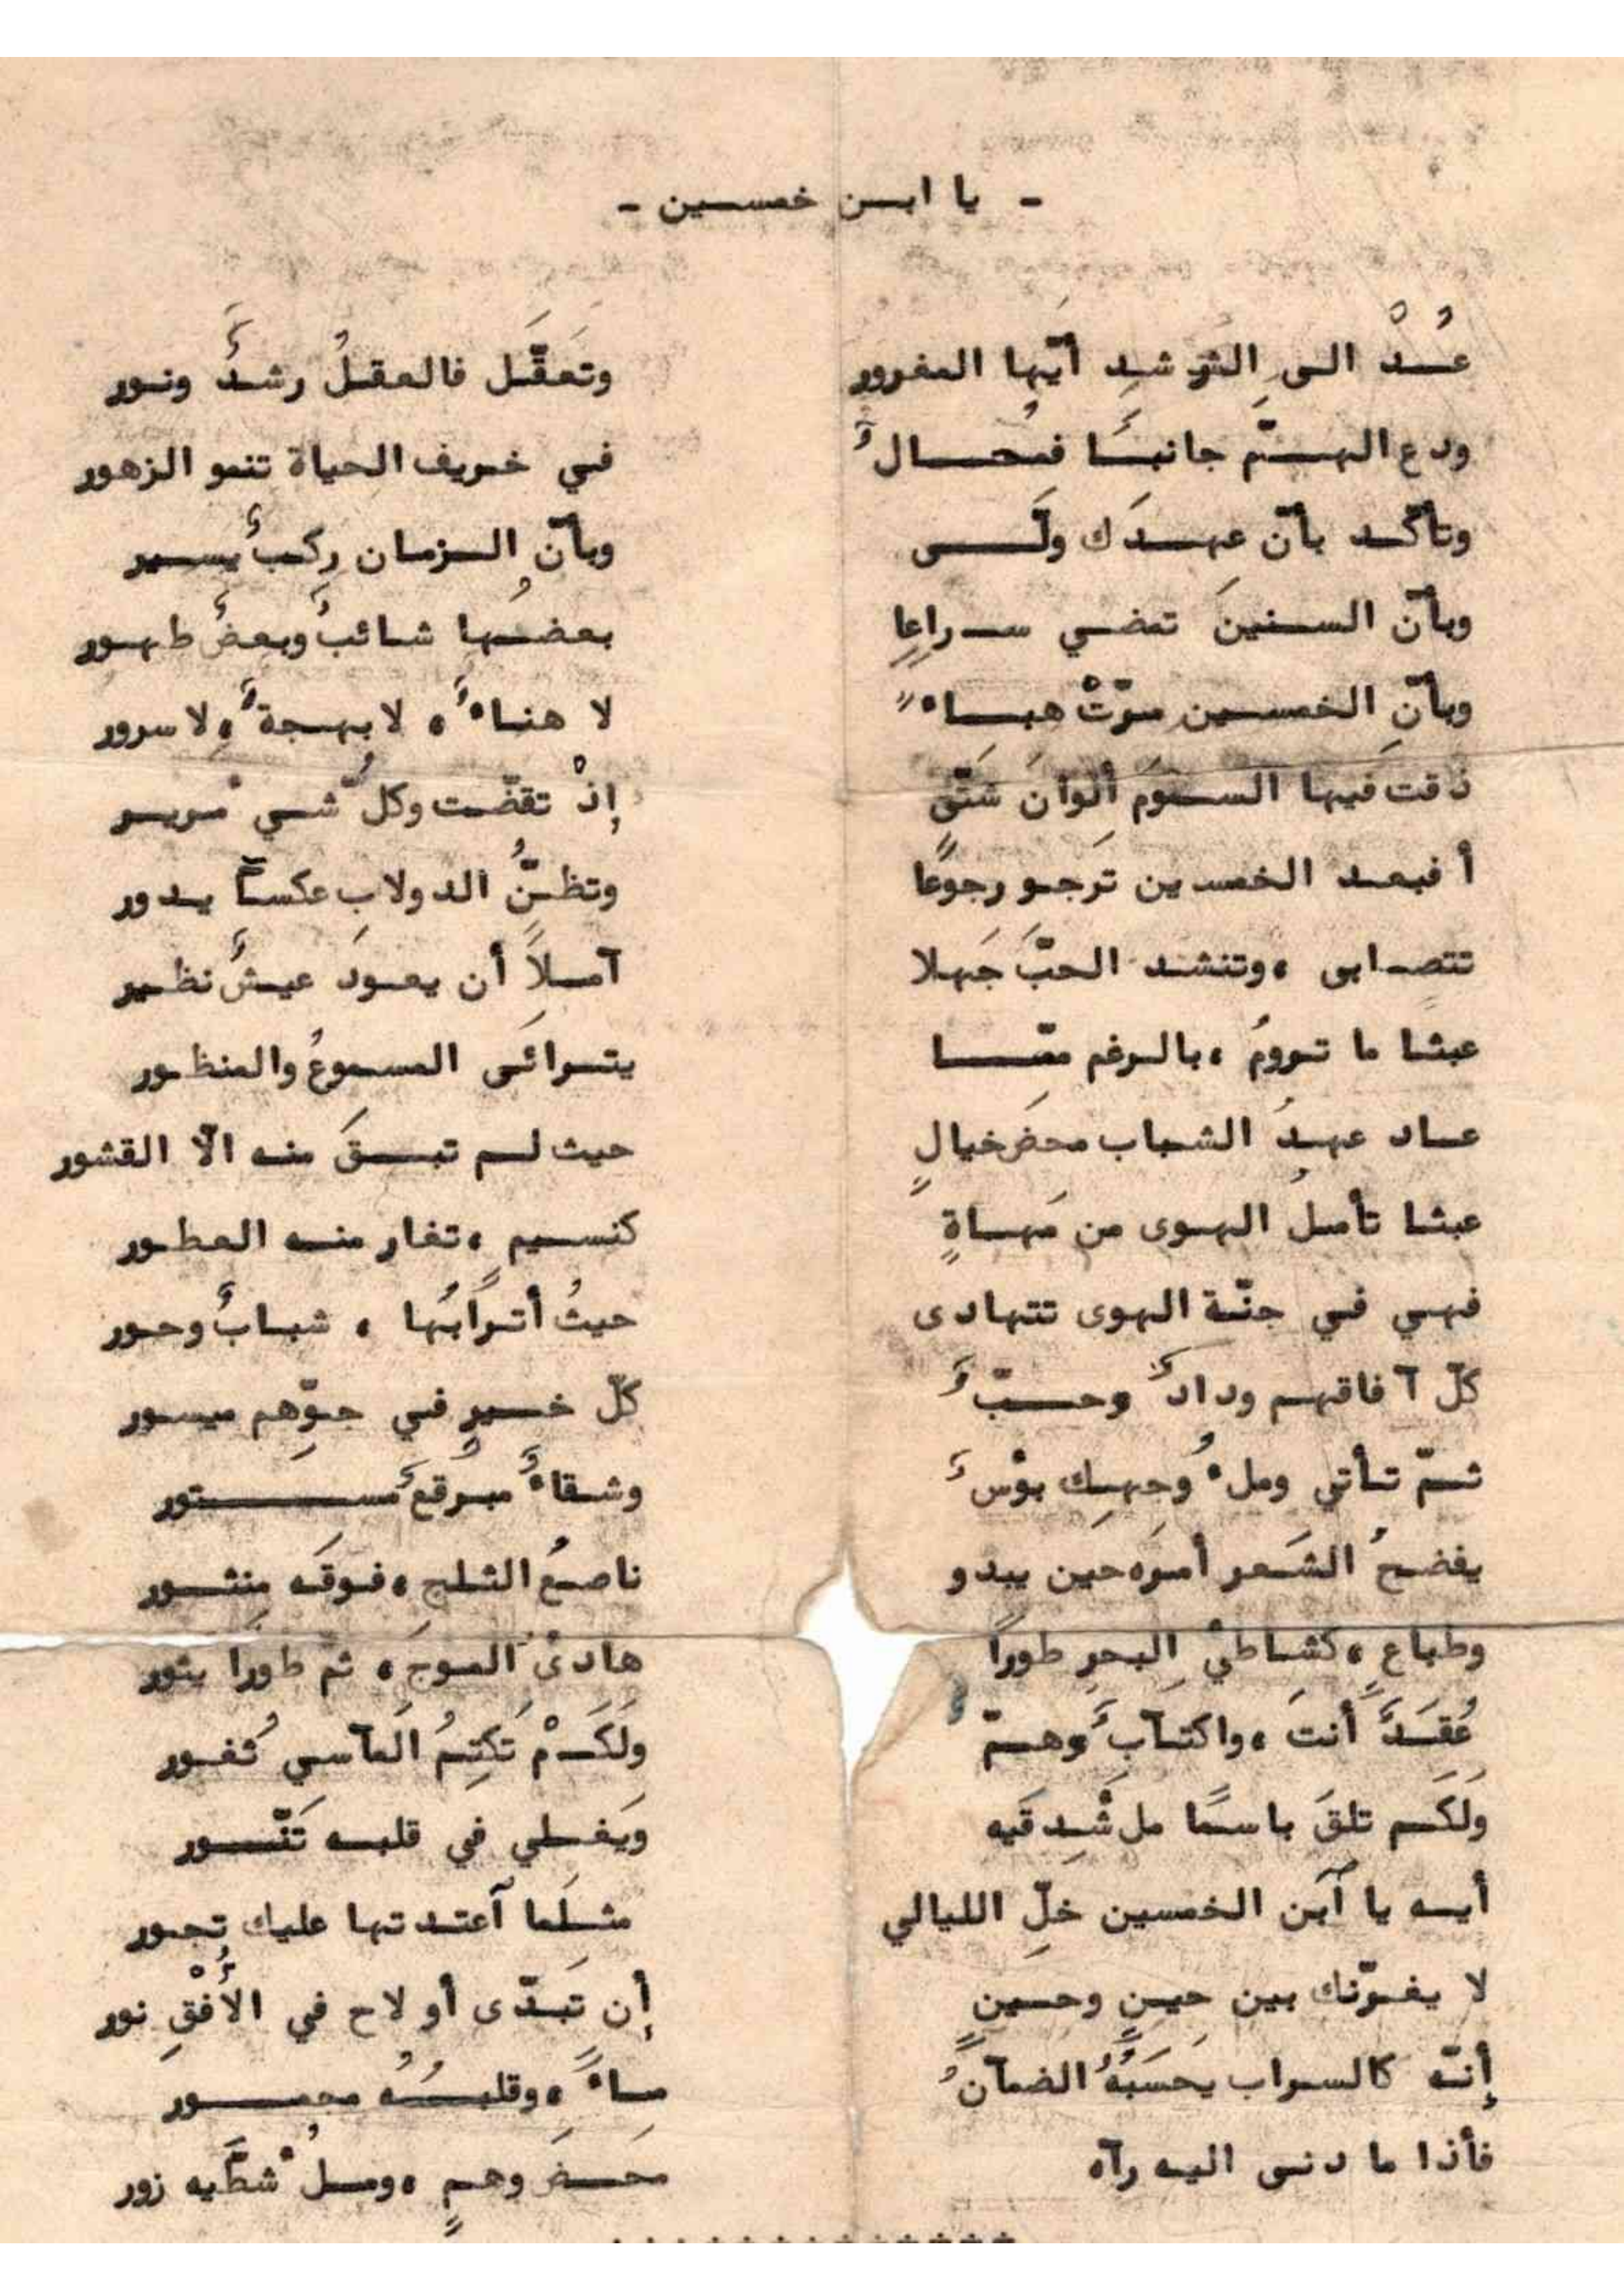 - يا ابن خمسين -
عُدْ الى الرشدِ أيّها المغرور وتعقّل فالعقلُ رشدٌ ونور
ودع الهمّ جانبًا فمحالٌ في خريف الحياة تنمو الزهور
وتأكّد بأنّ عهدَك ولّى وبأنّ الزمان ركبٌ يسير
وبأنّ السنينَ تمضي سراعا بعضُها شائبٌ وبعضٌ طهور
وبأنّ الخمسين مرّتْ هباءً لا هناءٌ، لا بهجةٌ، لا سرور
ذقتَ فيها السمومَ ألوانَ شتّى إذْ تقضّت وكلّ شيء مرير
أفبعد الخمسين تَرجو رجوعًا وتظنُّ الدولابَ عكساً يدور
تتصابى، وتنشد الحبَّ جَهلا آملاً أن يعودَ عيشٌ نظير
عبثا ما ترومُ، بالرغم ممّا يتراءَى المسموعُ والمنظور
عاد عهدُ الشباب محضَ خيالٍ حيث لم تبقَ منه الّا القشور
عبثا تأملُ الهوى من مَهاةٍ كنسيمٍ، تغار منه العطور
فهي في جنّة الهوى تتهادى حيثُ أترابُها، شبابٌ وحور
كلّ آفاقهم ودادٌ وحبٌّ كلّ خيرٍ في جوّهم ميسور
ثمّ تأتي وملءُ وجهِك بؤسٌ وشقاءٌ مبرقعٌ مستور
يفضحُ الشَعر أمرَه حين يبدو ناصعُ الثلج، فوقَه منثور
وطباعٍ، كشاطئِ البحرِ طوراً هادئَ الموجَ، ثم طوراً يثور
عُقَدٌ أنتَ، واكتئابٌ وهمّ ولَكَمْ تَكتِمُ المآسي ثُغور
ولَكَم تلقَ باسمًا ملْ شِدقَيه ويَغلي في قلبه تَنّور
أيه يا آبن الخمسين خلِّ الليالي مثلَما آعتدتها عليك تجور
لا يغرّنك بين حينٍ وحينٍ إن تَبدّى أو لاح في الأُفْقِ نور
إنّه كالسراب يَحسَبُهُ الضمآنُ ماءً، وقلبُهُ مجمور
فأذا ما دنى اليه رآه محضَ وهمٍ، وملءُ شطَّيه زور